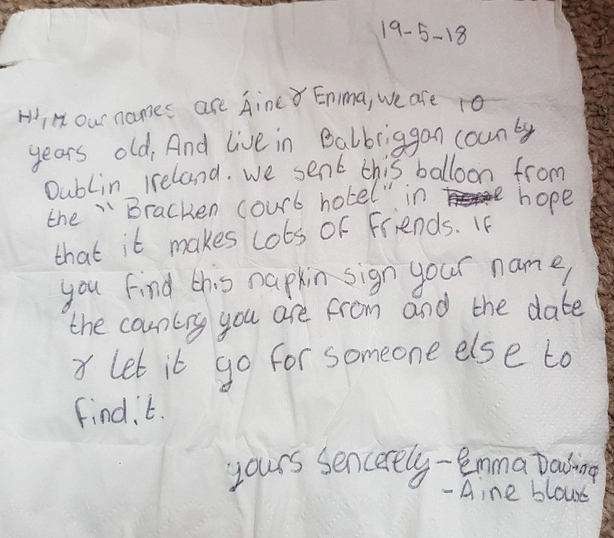 19-5-18
Hi, our names are Áine & Emma, we are 10
years old, And live in Balbriggan county
Dublin Ireland. we sent this balloon from
the "Bracken court hotel" in hope
that it makes lots of friends. If
you find this napkin sign your name,
the country you are from and the date
& let it go for someone else to
find it.
yours sencerely - Emma
- Aine